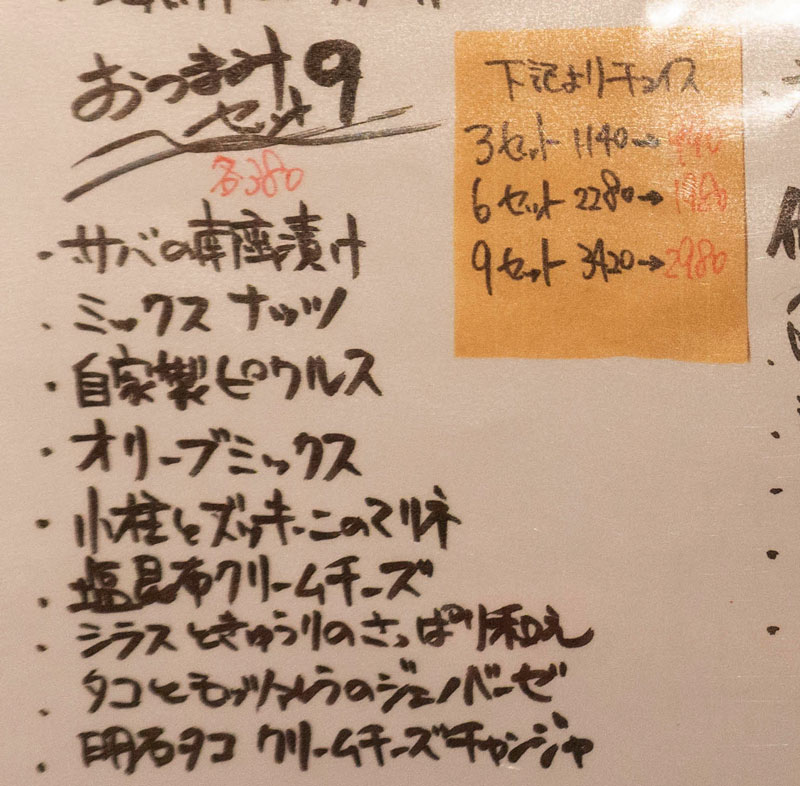 おつまみ
セット9
各380
・サバの南座漬け
・ミックスナッツ
・自家製ピクルス
・オリーブミックス
・小柱とズッキーニのマリネ
・塩昆布クリームチーズ
・シラスときゅうりのさっぱり和え
・タコとモッツァレラのジェノベーゼ
・明石タコ クリームチーズチャンジャ
下記よりチョイス
3セット 1140→990
6セット 2280→1980
9セット 3420→2980